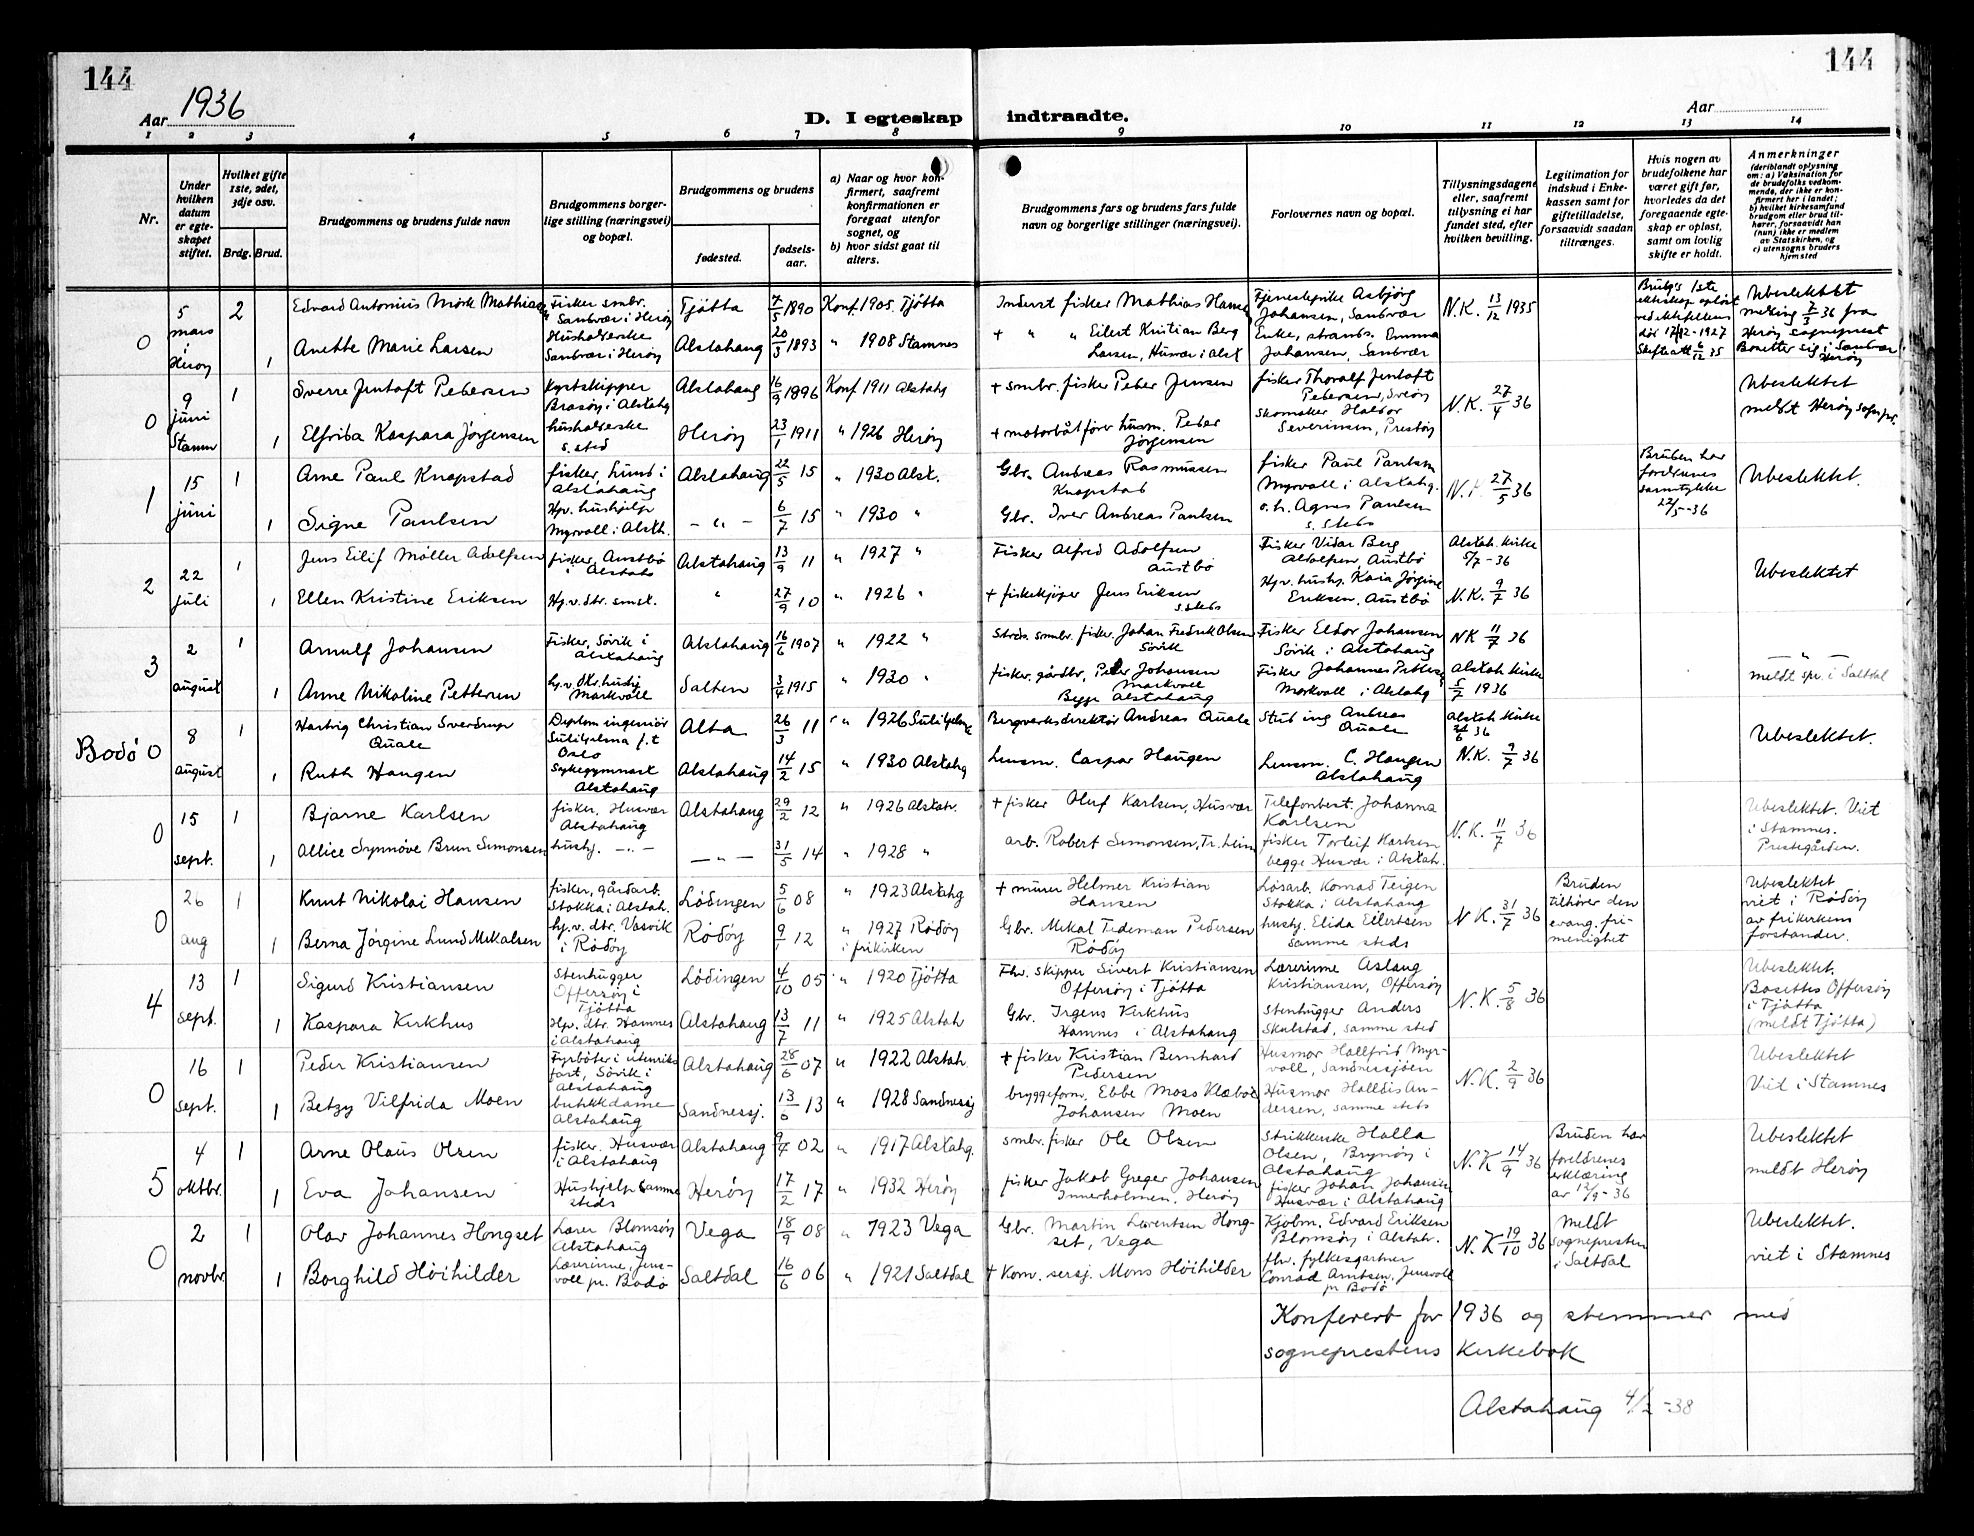 144
144
Aar 1936
D. I egteskap indtraadte.
Aar
1 2 3 4 5 6 7 8 9 10 11 12 13 14
Nr.
Under hvilken datum er egteskapet stiftet.
Hvilket gifte 1ste, 2det, 3dje osv.
Brdg. Brud.
Brudgommens og brudens fulde navn
Brudgommens borgerlige stilling (næringsvei) og bopæl.
Brudgommens og brudens
fødested.
fødselsaar.
a) Naar og hvor konfirmert, saafremt konfirmationen er foregaat utenfor sognet, og
b) hvor sidst gaat til alters.
Brudgommens fars og brudens fars fulde navn og borgerlige stillinger (næringsvei).
Forlovernes navn og bopæl.
Tillysningsdagene eller, saafremt tillysning ei har fundet sted, efter hvilken bevilling.
Legitimation for indskud i Enkekassen samt for giftetilladelse, forsaavidt saadan tiltrænges.
Hvis nogen av brudefolkene har været gift før, hvorledes da det foregaaende egteskap er opløst, samt om lovlig skifte er holdt.
Anmerkninger
(deriblandt oplysning om: a) Vaksination for de brudefolks vedkommende, der ikke er konfirmert her i landet; b) hvilket kirkesamfund brudgom eller brud tilhører, forsaavidt han (hun) ikke er medlem av Statskirken, og c) utensogns bruders hjemsted
0 5 mars i Herøy 2 Edvard Antonius Mørk Mathisen Fisker smbr. Sandvær i Herøy Tjøtta 7/5 1890 Konf. 1905. Tjøtta Inderst fisker Mathias Fjenestepike Asbjørg Johansen, Sandvær N.K. 13/12 1935
1 Anette Marie Larsen Husholderske Sandvær i Herøy Alstahaug 20/3 1893 " 1908 Stamnes + " " Eilert Kristian Berg Larsen, Husvær i Alst Enke, strands. Emma Johansen, Sandvær
Brudg's 1ste ektskap opløst ved ektefellens død 17/12-1927 Skifteatt 6/12 35
Ubeslektet melding 7/3 36 fra Herøy sogneprest Bosetter sig i Sandvær Herøy
0 9 juni Stamn 1 Sverre Jentoft Pedersen Kystskipper Brasøy i Alstahg Alstahaug 16/9 1896 Konf 1911 Alstahg + smbr. fisker Peder Jensen fisker Thoralf Jentoft Pedersen, N.K. 27/4 36 Ubeslektet
1 Elfrida Kaspara Jørgensen husholderske s. sted Herøy 23/1 1911 " 1926 Herøy + motorbåtfører husm. Peder Jørgensen Skomaker Haldor Severinsen, Prestøy meldt Herøy sogn.pr.
1 15 juni 1 Arne Paul Knapstad fisker, Lund i Alstahaug Alstahaug 22/5 15 " 1930 Alst. Gbr. Andreas Rasmussen Knapstad fisker Paul Paulsen Myrvoll i Alstahg. N.K. 27/5 36 Bruden har foreldrenes samtykke 22/5-36 Ubeslektet.
1 Signe Paulsen Hjv. hushjelp Myrvoll i Alsth. - " - 6/7 15 " 1930 " Gbr. Iver Andreas Paulsen o.h. Agnes Paulsen s. steds
2 22 juli 1 Jens Eilif Møller Adolfsen fisker, Austbø i Alstahg Alstahaug 13/9 11 " 1927 " Fisker Alfred Adolfsen Austbø Fisker Vidar Berg Adolfsen Austbø Alstah. kirke 5/7-36 Ubeslektet
1 Ellen Kristine Eriksen Hj.v. dtr. smst. " 27/9 10 " 1926 " + fiskekjøper Jens Eriksen s. steds Hjv. hushj. Kaia Jørgine Eriksen, Austbø N.K. 9/7 36
3 2 august 1 Arnulf Johansen Fisker, Søvik i Alstahaug Alstahaug 16/6 1907 " 1922 " Strds. smbr. fisker, Johan Fredrik Olsen Søvik Fisker Eldor Johansen Søvik i Alstahaug NK 11/7 36 — " —
1 Anne Nikoline Pettersen hj.v. dtr. hushj Markvoll Salten 3/4 1915 " 1930 " fisker, gårdbr, Peder Johansen Markvoll Begge Alstahaug Fisker Johannes Petters Markvoll i Alstahg Alstah. kirke 5/7 1936 meldt spr. i Saltdal
Bodø 0 8 august 1 Hartvig Christian Sverdrup Quale Diplom ingeniør Sulitjelma f.t Oslo Alta 26/3 11 " 1926 Sulitjelma Bergverksdirektør Andreas Quale Stud ing Andreas Quale Alstah. Kirke 36 Ubeslektet.
1 Ruth Haugen Sykegymnast Alstahaug Alstahaug 14/2 15 " 1930 Alstahg Lensm. Caspar Haugen Lensm. C. Haugen Alstahaug N.K. 9/7 36
0 15 sept. 1 Bjarne Karlsen fisker, Husvær Alstahaug Alstahaug 29/2 12 " 1926 Alstah. + fisker Oluf Karlsen, Husvær Telefonbest. Johanna Karlsen N.K. 11/7 36 Ubeslektet. Viet i Stamnes. Prestegården.
1 Allice Synnøve Brun Simonsen hushj. - " - — " — 31/5 14 " 1928 " arb. Robert Simonsen, Tr.heim fisker Torleif Karlsen begge Husvær i Alstah.
0 26 aug 1 Knut Nikolai Hansen fisker, gårdarb. Stokka i Alstah. Lödingen 5/6 08 " 1923 Alstahg + murer Helmer Kristian Hansen Løsarb. Konrad Teigen Stokka i Alstahaug N.K. 31/7 36 Bruden tilhører den evang. frimenighet Ubeslektet viet i Rødøy av frikirkens forstander.
1 Berna Jörgine Lund Mikalsen hj.v. dtr. Vasvik i Rødøy Rødøy 9/12 12 " 1927 Rødøy i frikirken Gbr. Mikal Tideman Pedersen Rødøy hushj. Elida Eilertsen samme steds
4 13 sept. 1 Sigurd Kristiansen Stenhugger Offersøy i Tjøtta Lödingen 4/10 05 " 1920 Tjøtta Fhv. skipper Sivert Kristiansen Offersøy i Tjøtta Lærerinne Aslaug Kristiansen, Offersøy N.K. 5/8 36 Ubeslektet. Bosettes Offersøy i Tjøtta (meldt Tjøtta)
1 Kaspara Kirkhus Hjv. dtr. Hamnes i Alstahaug Alstahaug 13/7 11 " 1925 Alstah Gbr. Irgens Kirkhus Hamnes i Alstahaug Stenhugger Anders Skulstad, samme sted
0 16 sept. 1 Peder Kristiansen Fyrbøter i utenriks fart, Søvik i Alstahaug Alstahaug 28/6 07 " 1922 Alstah. + fisker Kristian Bernhard Pedersen Husmor Hallfrid Myrvoll, Sandnessjøen N.K. 2/9 36 Ubeslektet Viet i Stamnes
1 Betzy Vilfrida Moen butikkdame Alstahaug Sandnessj. 13/6 13 " 1928 Sandnessj bryggeform. Ebbe Moss Klæboe Johansen Moen Husmor Halldis Andersen, samme steds
5 4 oktbr. 1 Arne Olaus Olsen fisker. Husvær i Alstahaug Alstahaug 9/4 02 " 1917 Alstahg. smbr. fisker Ole Olsen Strikkerske Halla Olsen, Brynøy i Alstahaug N.K 14/9 36 Bruden har foreldrenes erklæring av 12/9-36 Ubeslektet meldt Herøy
1 Eva Johansen Hushjelp samme steds Herøy 17/2 17 " 1932 Herøy fisker Jakob Greger Johansen Innerholmen, Herøy fisker Johan Johansen Husvær i Alstahaug
0 2 novbr 1 Olav Johannes Hongset Lærer Blomsøy Alstahaug Vega 18/9 08 " 1923 Vega Gbr. Martin Lorentsen Hongset, Vega Kjøbm. Edvard Eriksen Blomsøy i Alstah. N.K 19/10 36 meldt sognepresten i Saltdal Ubeslektet. viet i Stamnes
1 Borghild Höihilder Lærerinne, Jensvoll pr. Bodø Saltdal 16/6 06 " 1921 Saltdal + Kom. sersj. Mons Höihilder fhv. fylkesgartner Conrad Arntsen, Jensvoll pr Bodø
Konferert for 1936 og stemmer med
sogneprestens kirkebok
Alstahaug 4/2-38